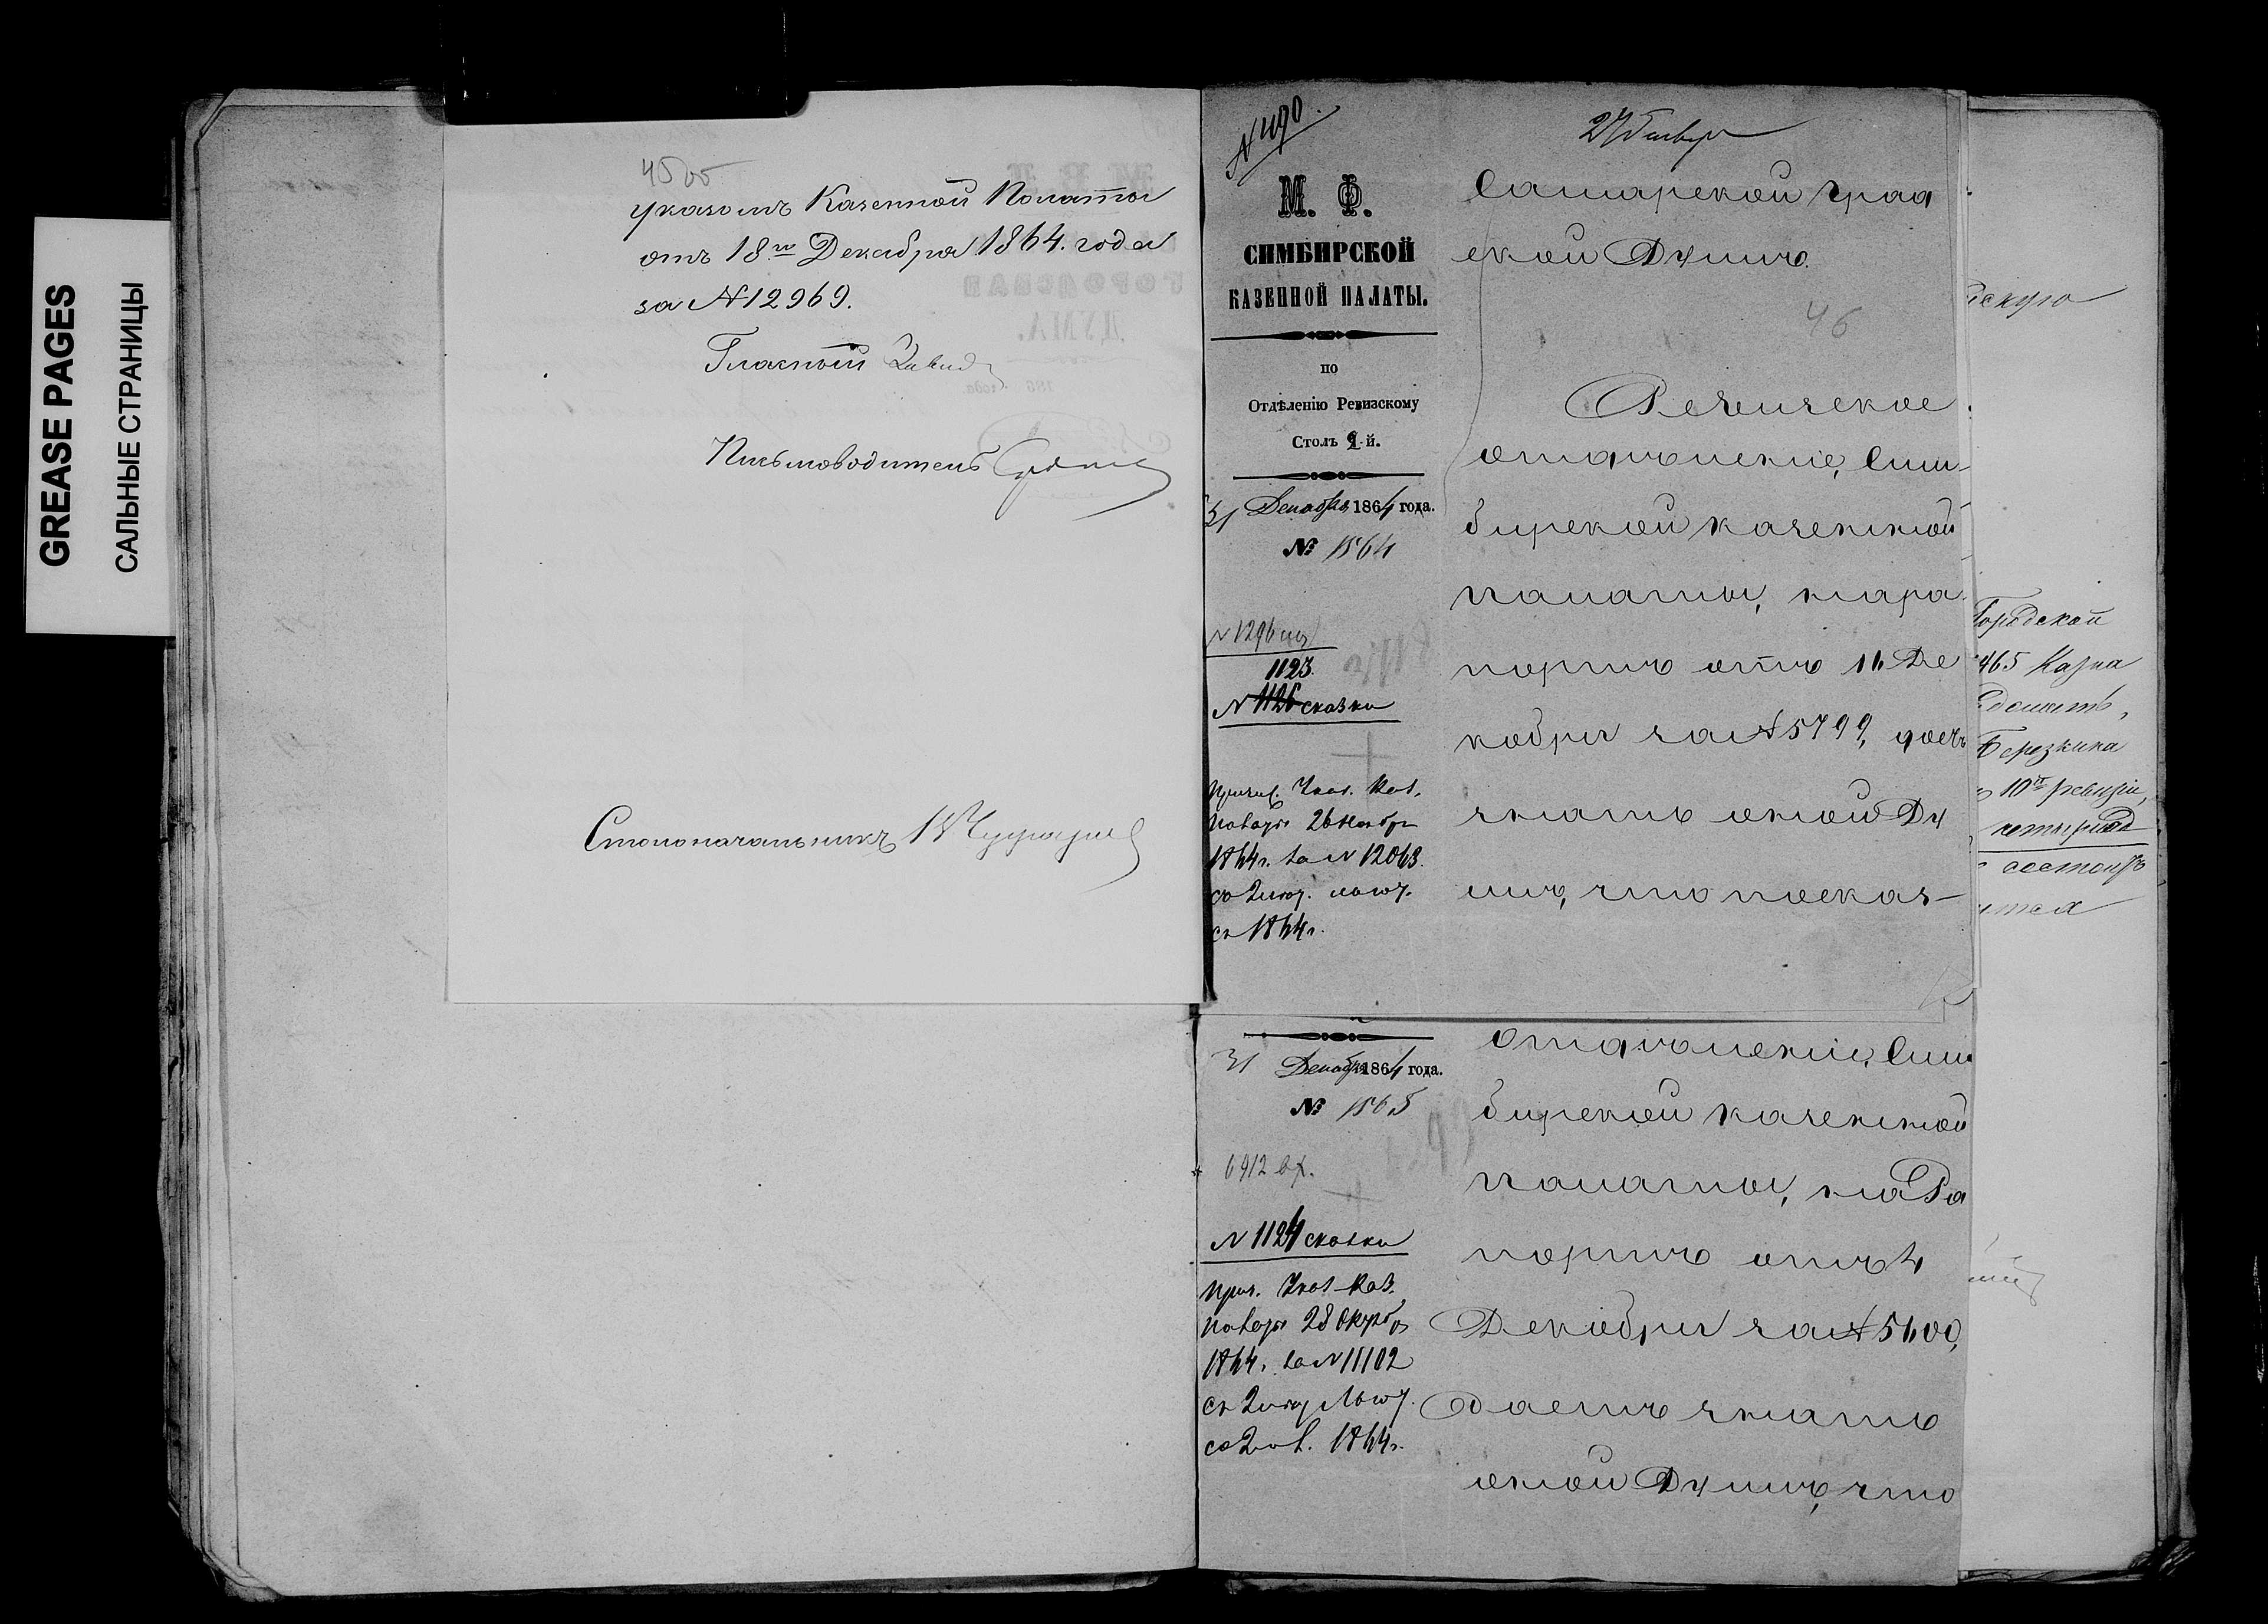 GREASE PAGES
САЛЬНЫЕ СТРАНИЦЫ
указомъ Казенной Полаты
отъ 18го Декабря 1864. года
за №12969.
Гласный
Письмоводитель
Столоначальникъ
№ 1190.
27 Января
М. Ф.
СИМБИРСКОЙ
КАЗЕННОЙ ПАЛАТЫ.
по
Отдѣленію Ревизскому
Столъ 2-й.
31 Декабря 1864 года.
№ 1564
1123.
№ 1126 сказки
Причис. Указ. Каз.
Палаты 26 Ноября
1864г. за № 12063.
со 2 пол.
1864г.
Самарской град
ской Думѣ.
46
Ревизское
отдѣленіе, Сим-
бирской казенной
палаты, на ра
портъ отъ 11 Де
кабря за №5799, даетъ
знать оной Ду
мѣ, что по сказ-
31 Декабря 1864 года.
№ 1565
6912 вх.
№ 1124 сказки
Прич. Указ. Каз.
Палаты 28 Октября
1864г. за №11102
1864г.
отдѣленіе, Сим
бирской казенной
палаты, на Ра
портъ отъ 4
Декабря за №5600,
даетъ знать
оной Думѣ, что
Городской
465 Казна
Березкина
10й ревизіи,